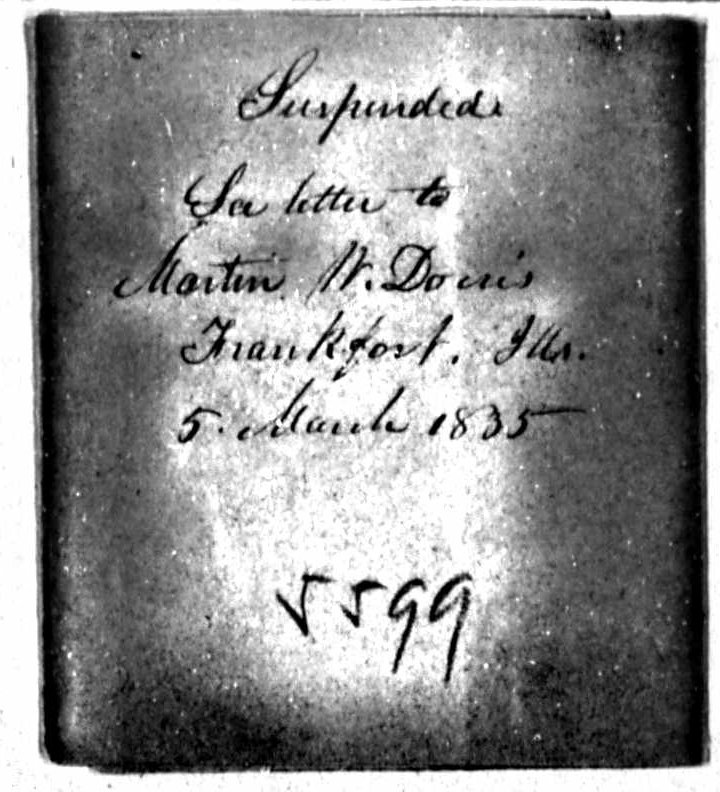 Suspended.
See letter to
Martin W. Doris
Frankfort. Ills.
5. March 1835
5599